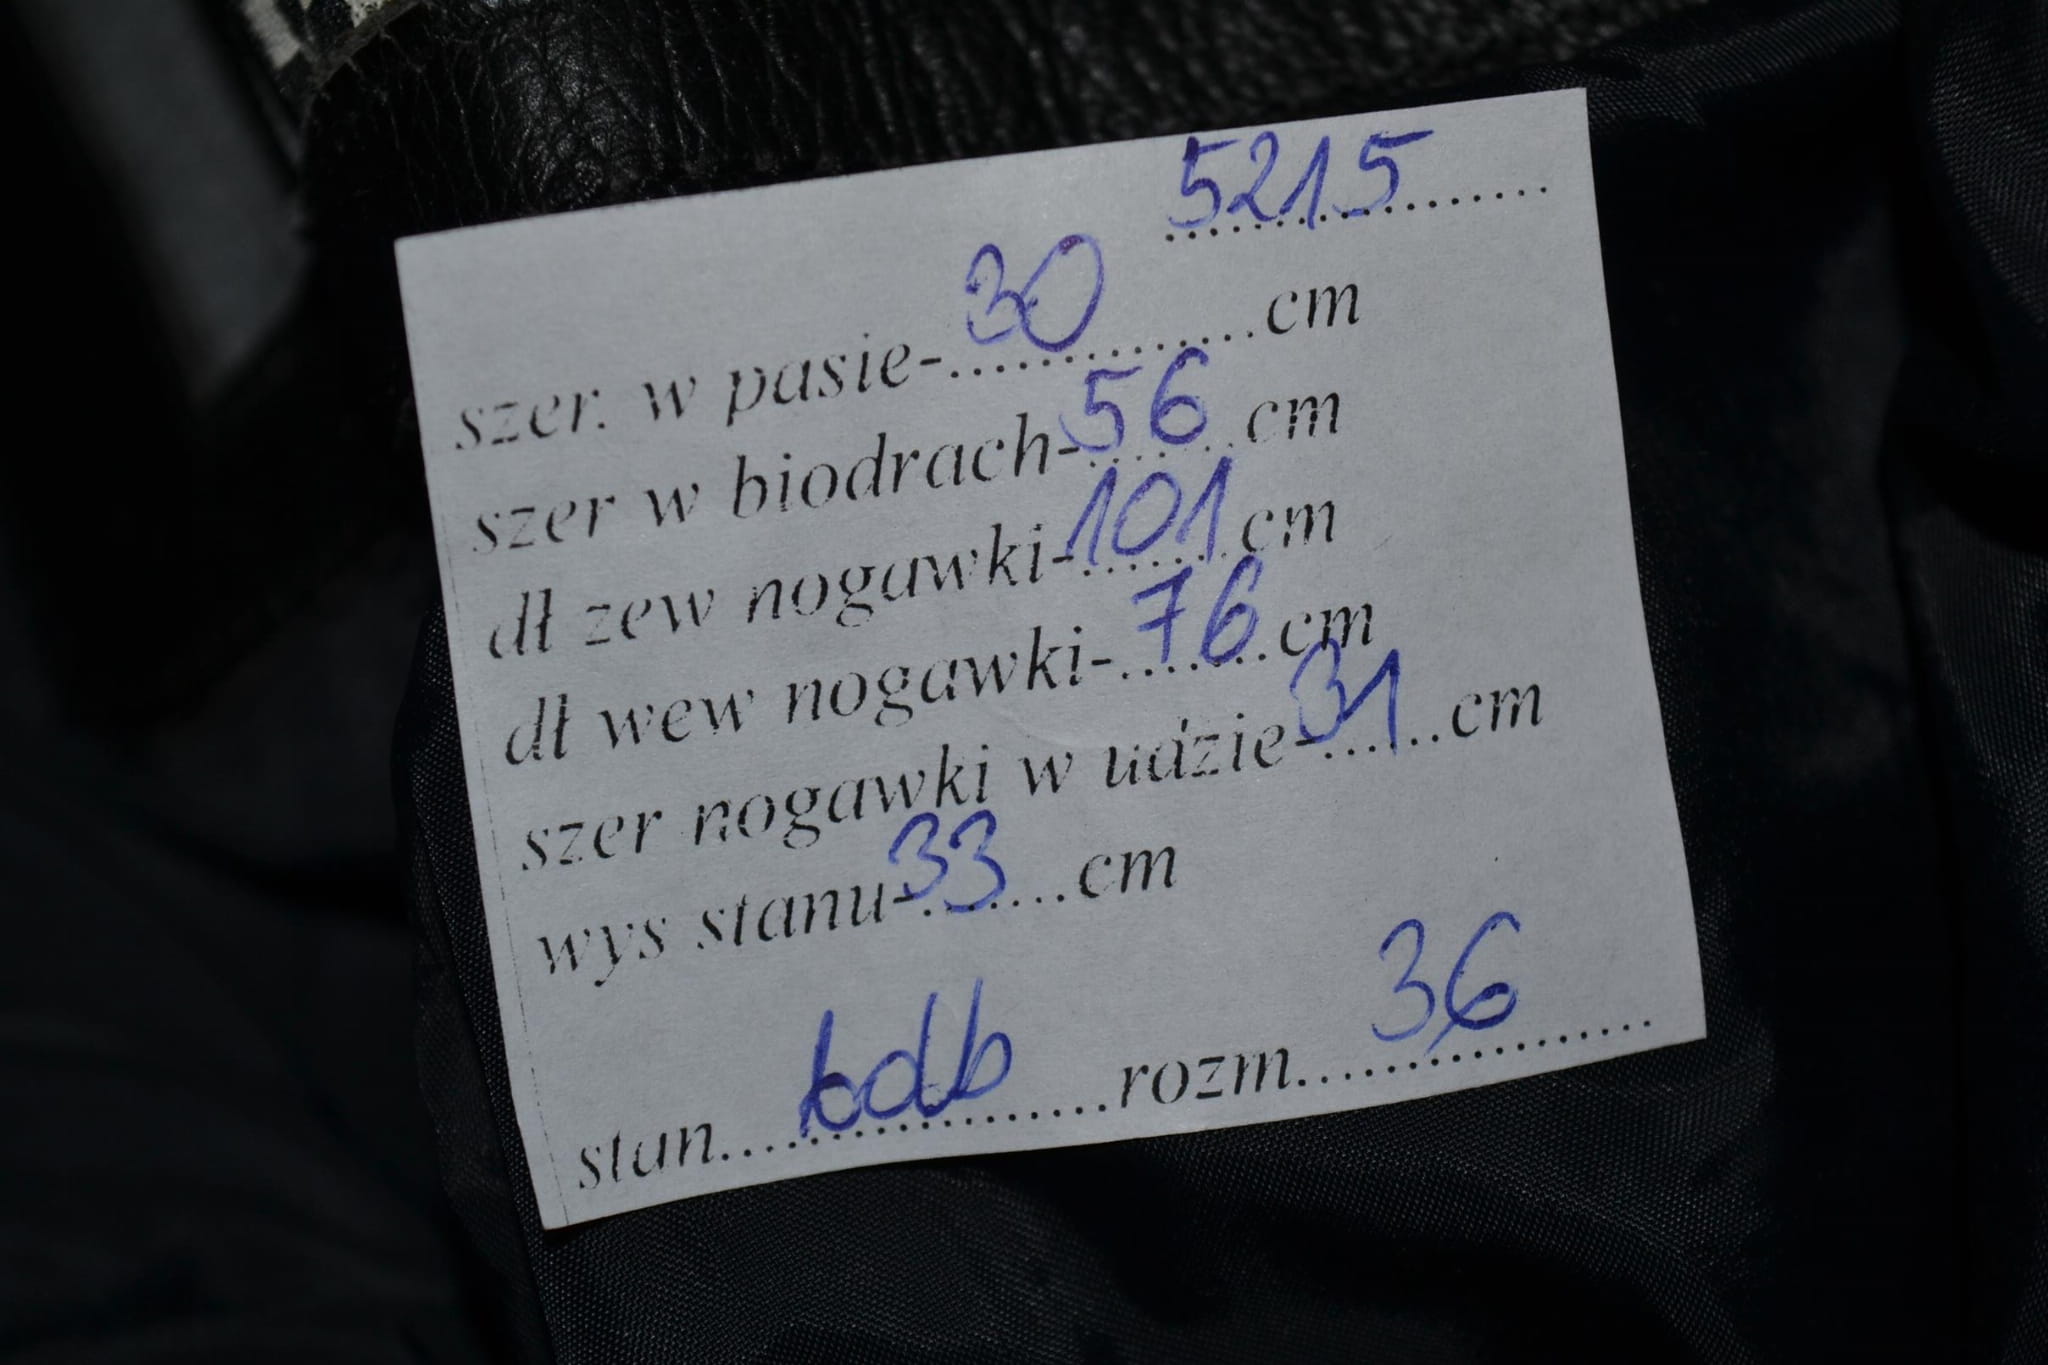 5215
szer. w pasie-30cm
szer w biodrach-56cm
dł zew nogawki-101cm
dł wew nogawki-76cm
szer nogawki w udzie-31cm
wys stanu-33cm
stan bdb rozm 36